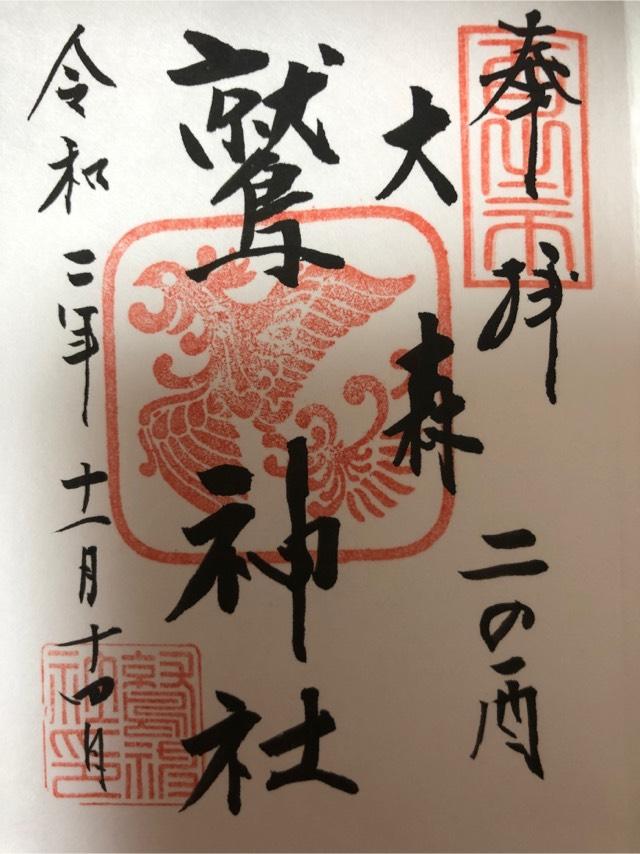 奉拝 二の酉
大森
鷲神社
令和二年十一月十四日
鷲神
社印